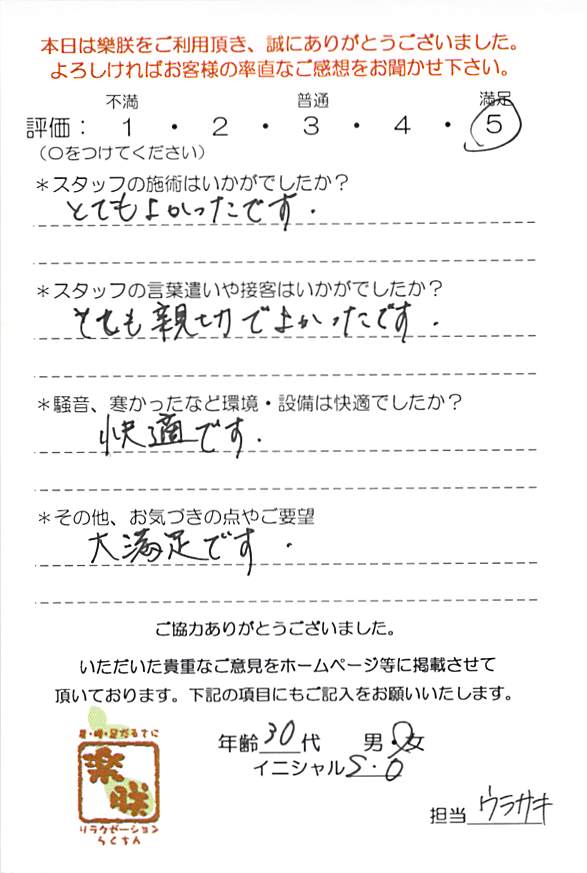 本日は樂朕をご利用頂き、誠にありがとうございました。
よろしければお客様の率直なご感想をお聞かせ下さい。
不満 普通 満足
評価： 1 ・ 2 ・ 3 ・ 4 ・ 5
（○をつけてください）
＊スタッフの施術はいかがでしたか？
とてもよかったです.
＊スタッフの言葉遣いや接客はいかがでしたか？
とても親切でよかったです.
＊騒音、寒かったなど環境・設備は快適でしたか？
快適です.
＊その他、お気づきの点やご要望
大満足です.
ご協力ありがとうございました。
いただいた貴重なご意見をホームページ等に掲載させて
頂いております。下記の項目にもご記入をお願いいたします。
年齢 30 代 男・女
イニシャル S・O
担当 ウラサキ
樂朕
リラクゼーション
らくちん